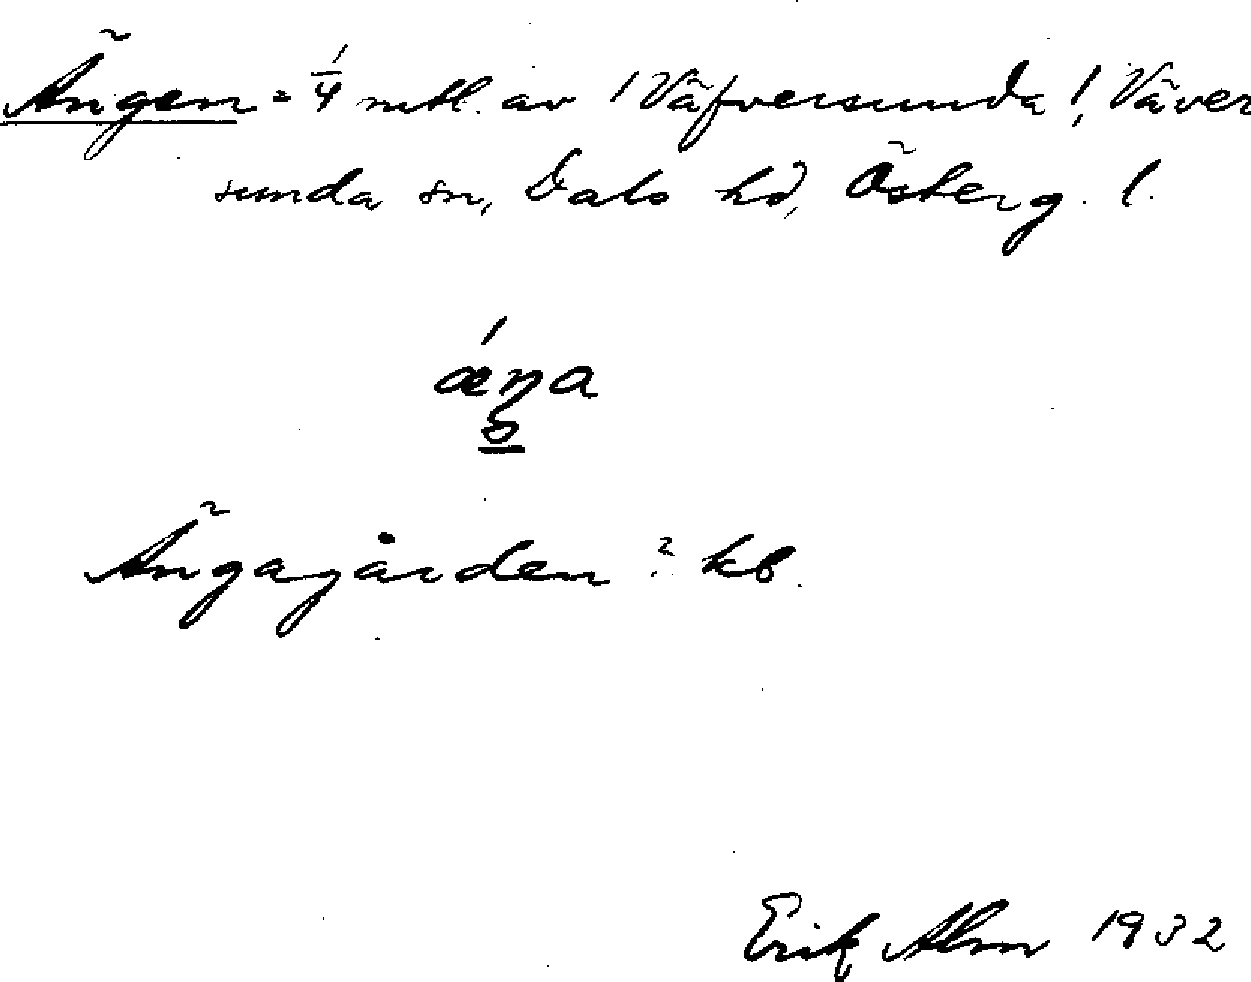 Ängen = 1/4 mtl. av 1 Väfversunda 1, Väver
sunda sn, Dals hd, Österg. l.
ǽŋa
Ängagården : kb.
Erik Alm 1932